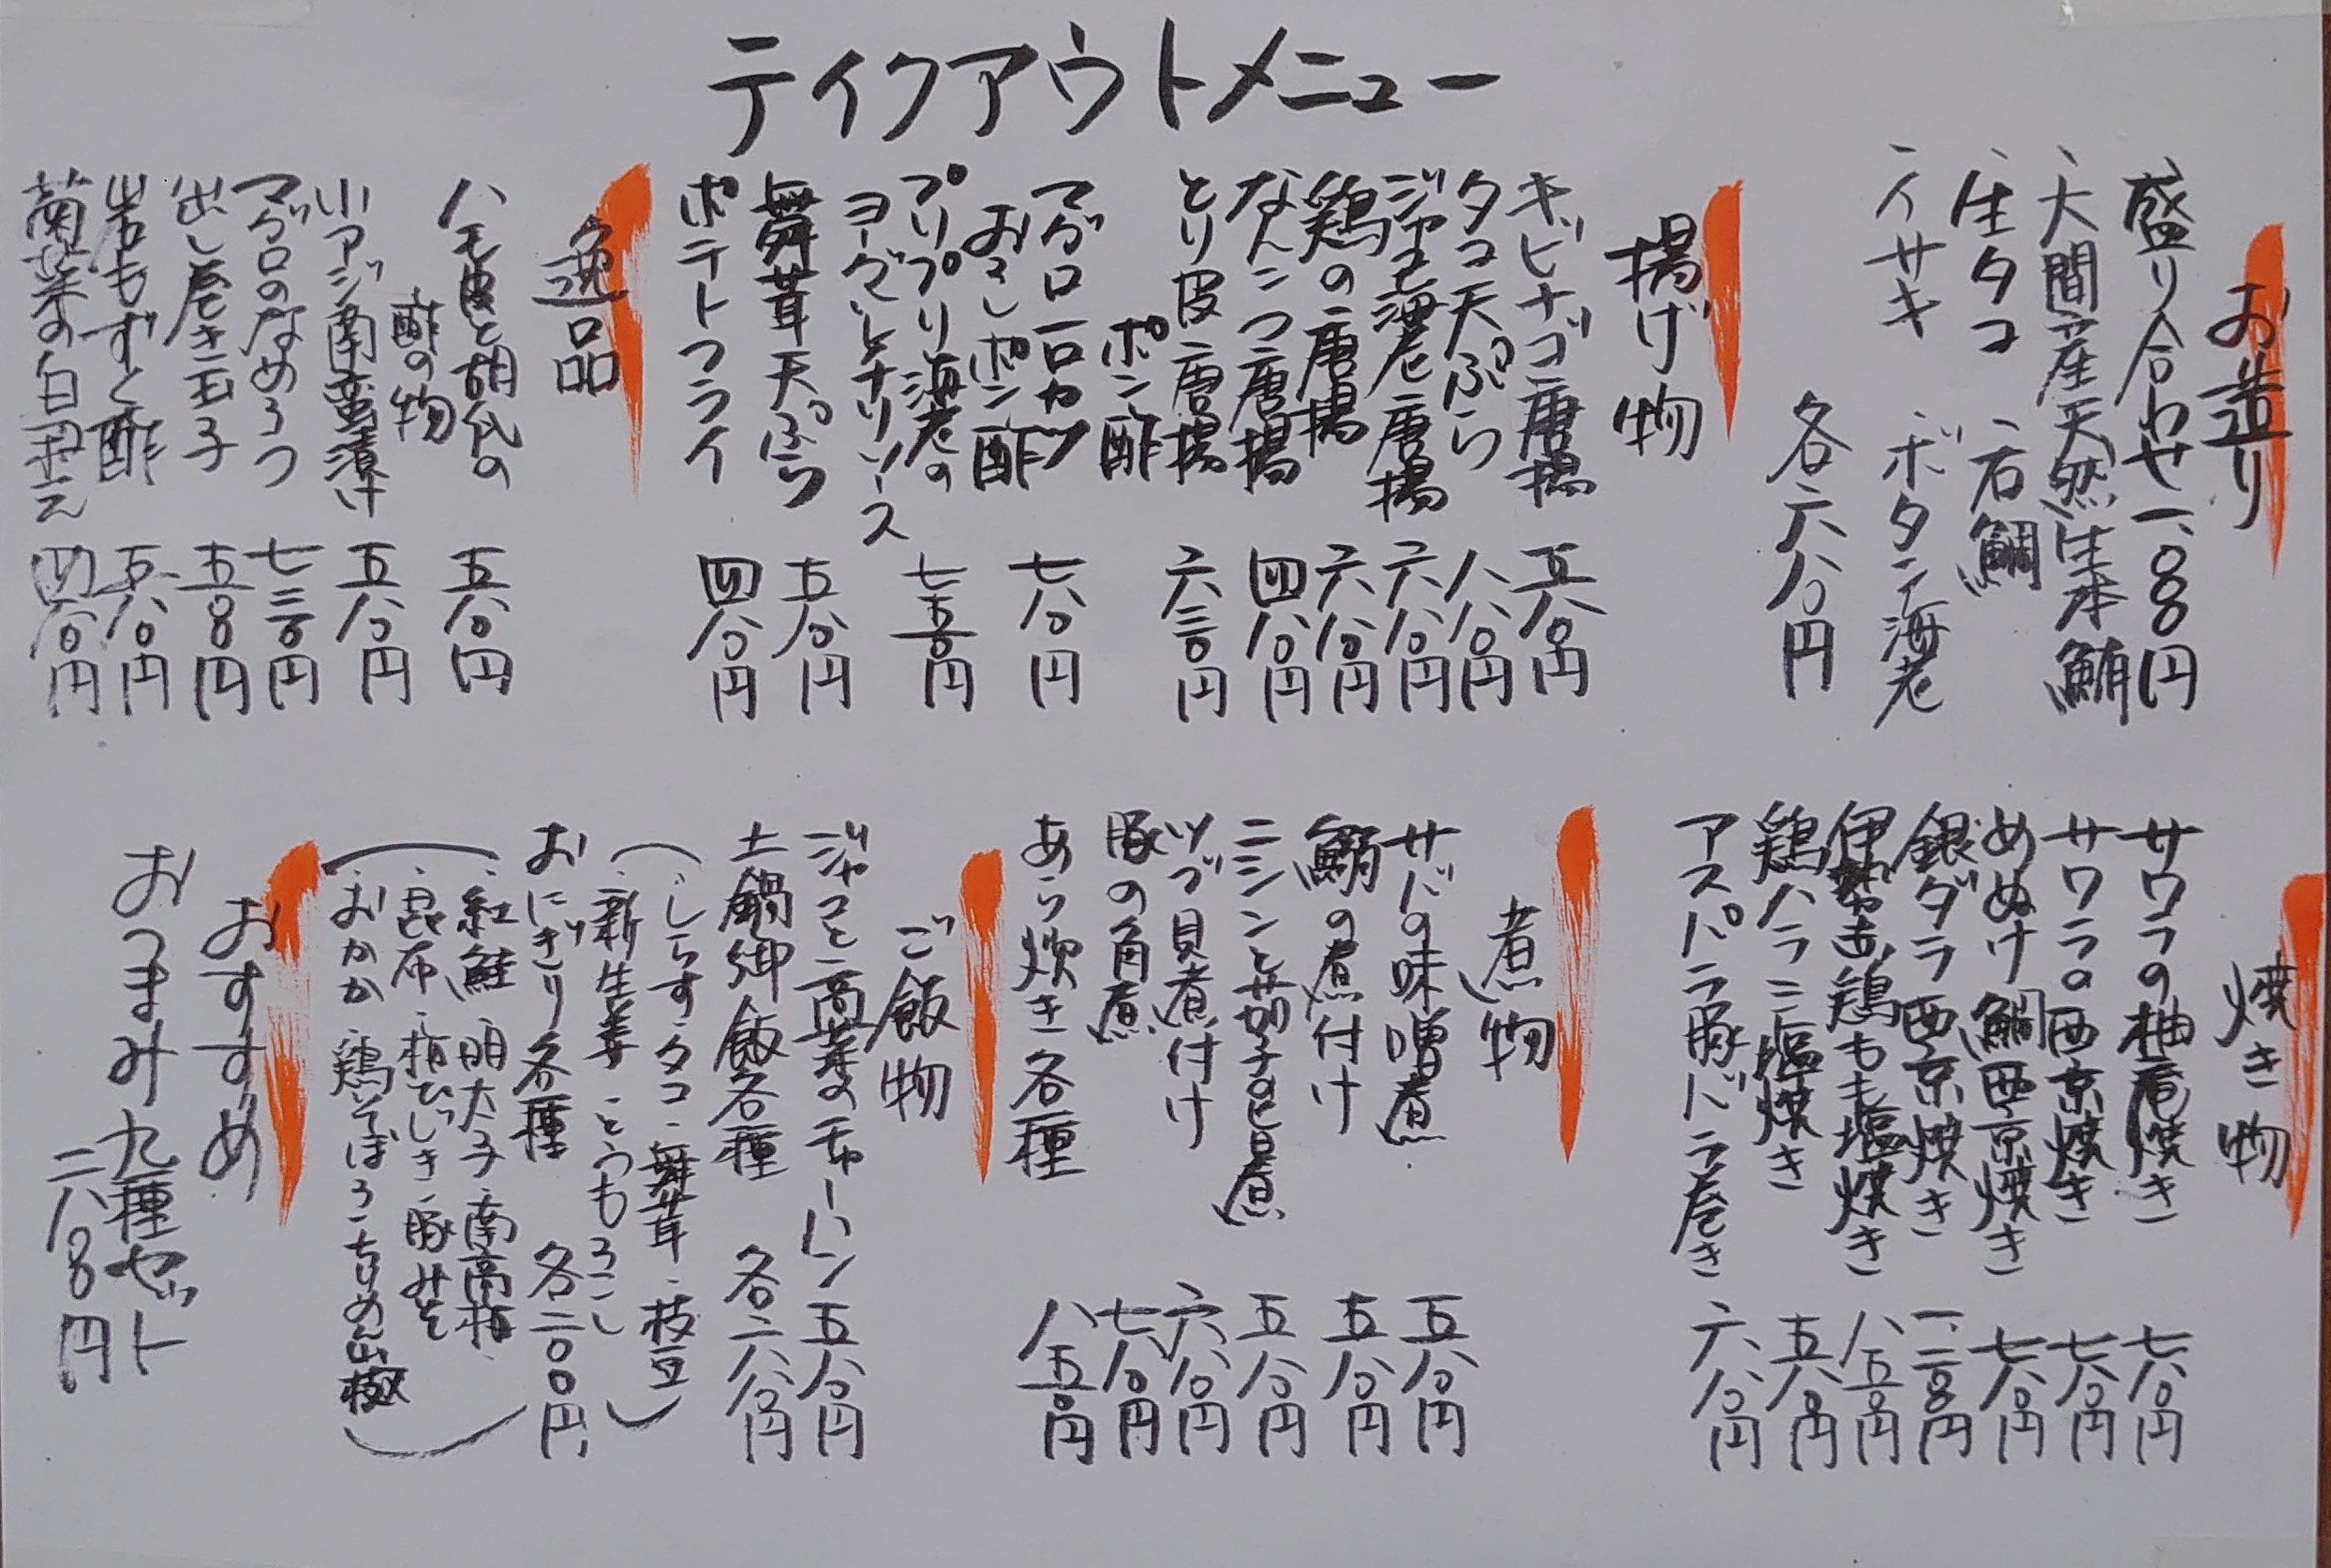 テイクアウトメニュー
お造り
盛り合わせ 一、〇〇〇円
、大間産天然生本鮪
、生タコ 、石鯛
、イサキ ボタン海老
各六八〇円
揚げ物
キビナゴ唐揚 五八〇円
タコ天ぷら 八八〇円
ジャコ海老唐揚 六八〇円
鶏の唐揚 六八〇円
なんこつ唐揚 四八〇円
とり皮唐揚 六三〇円
ポン酢
マグロ一口カツ 七八〇円
おろしポン酢
プリプリ海老の 七五〇円
ヨーグルトチリソース
舞茸天ぷら 五八〇円
ポテトフライ 四八〇円
逸品
ハモ皮と胡瓜の 五八〇円
酢の物
小アジ南蛮漬け 五八〇円
マグロのなめろう 七三〇円
出し巻き玉子 五五〇円
岩もずく酢 五八〇円
菊菜の白和え 四八〇円
焼き物
サワラの柚庵焼き 七八〇円
サワラの西京焼き 七八〇円
めぬけ鯛西京焼き 七八〇円
銀ダラ西京焼き 一、二〇〇円
伊勢赤鶏もも塩焼き 八五〇円
鶏ハラミ塩焼き 五八〇円
アスパラ豚バラ巻き 六八〇円
煮物
サバの味噌煮 五八〇円
鰤の煮付け 五八〇円
ニシンと茄子の旨煮 五八〇円
ツブ貝煮付け 六八〇円
豚の角煮 七八〇円
あら炊き各種 八五〇円
ご飯物
ジャコと高菜のチャーハン 五八〇円
土鍋御飯各種 各六八〇円
（・しらす・タコ・舞茸・枝豆
・新生姜・とうもろこし）
おにぎり各種 各二〇〇円
（・紅鮭・明太子・南高梅・
・昆布・梅ひじき・豚みそ
・おかか・鶏そぼろ・ちりめん山椒）
おすすめ
おつまみ九種セット
二、八〇〇円